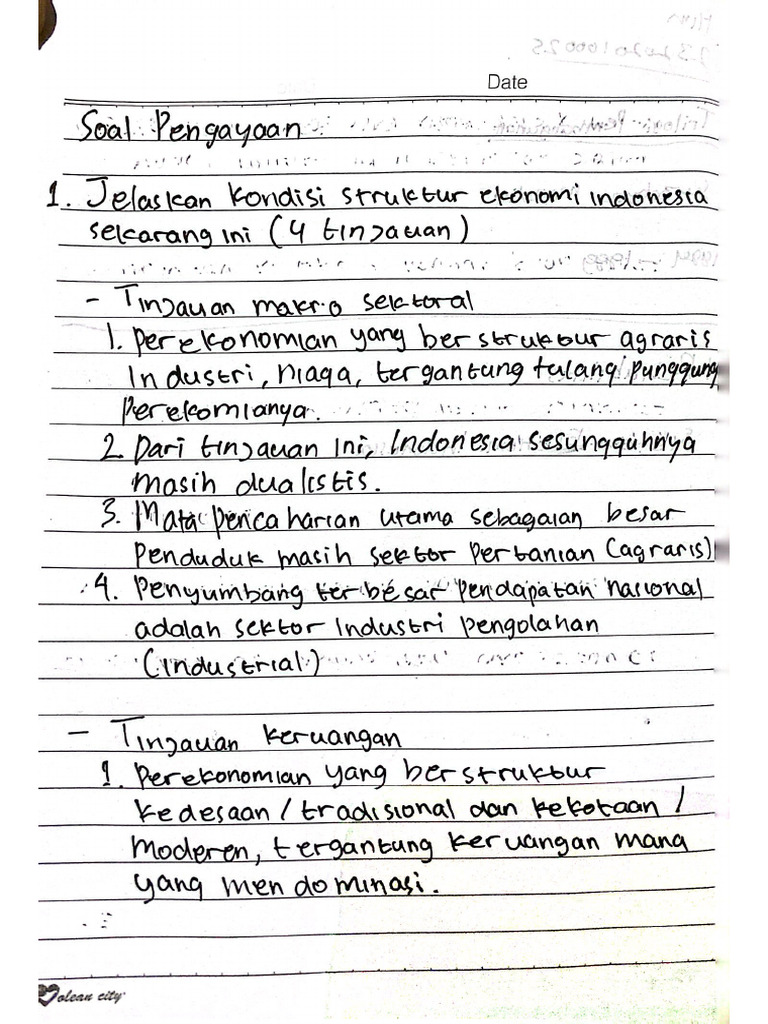 Date
Soal Pengayaan
1. Jelaskan kondisi struktur ekonomi indonesia
sekarang ini (4 tinjauan)
- Tinjauan makro sektoral
1. perekonomian yang berstruktur agraris
Industri, niaga, tergantung tulang punggung
perekomianya.
2. Dari tinjauan ini, Indonesia sesungguhnya
masih dualistis.
3. Mata pencaharian utama sebagaian besar
penduduk masih sektor pertanian (agraris)
4. Penyumbang terbesar pendapatan nasional
adalah sektor industri pengolahan
(industrial)
- Tinjauan keruangan
1. Perekonomian yang berstruktur
kedesaan / tradisional dan kekotaan /
moderen, tergantung keruangan mana
yang mendominasi.
olean city